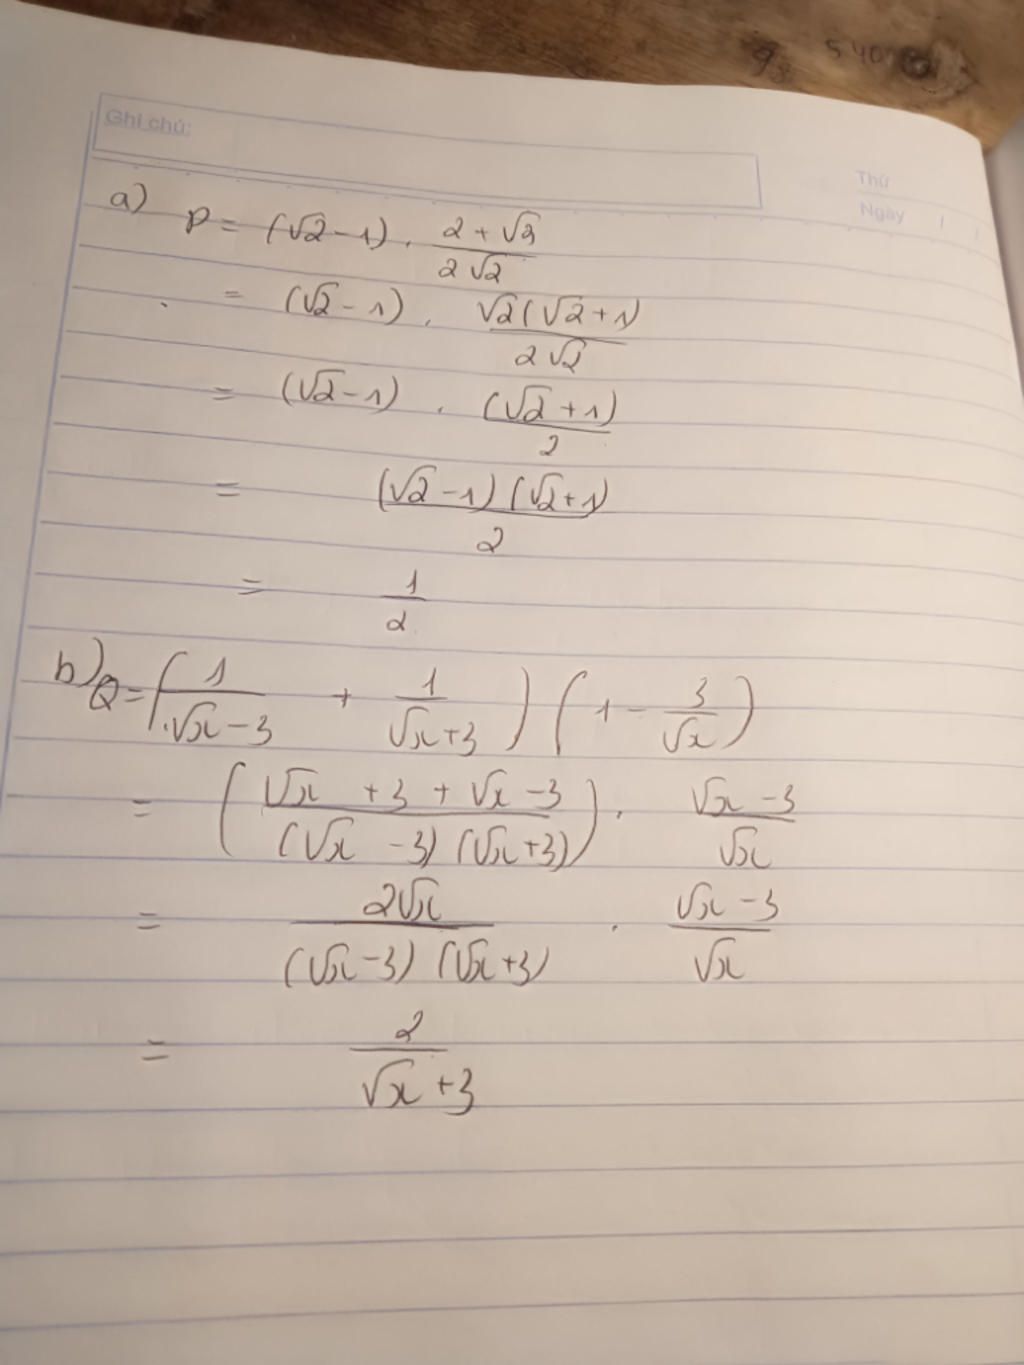 Ghi chú:
Thứ
Ngày / /
a) P = (√2 - 1) . (2 + √2)/(2√2)
= (√2 - 1) . √2(√2 + 1)/(2√2)
= (√2 - 1) . (√2 + 1)/2
= (√2 - 1)(√2 + 1)/2
= 1/2
b) Q = (1/(√x - 3) + 1/(√x + 3)) (1 - 3/√x)
= ((√x + 3 + √x - 3)/((√x - 3)(√x + 3))) . (√x - 3)/√x
= 2√x/((√x - 3)(√x + 3)) . (√x - 3)/√x
= 2/(√x + 3)